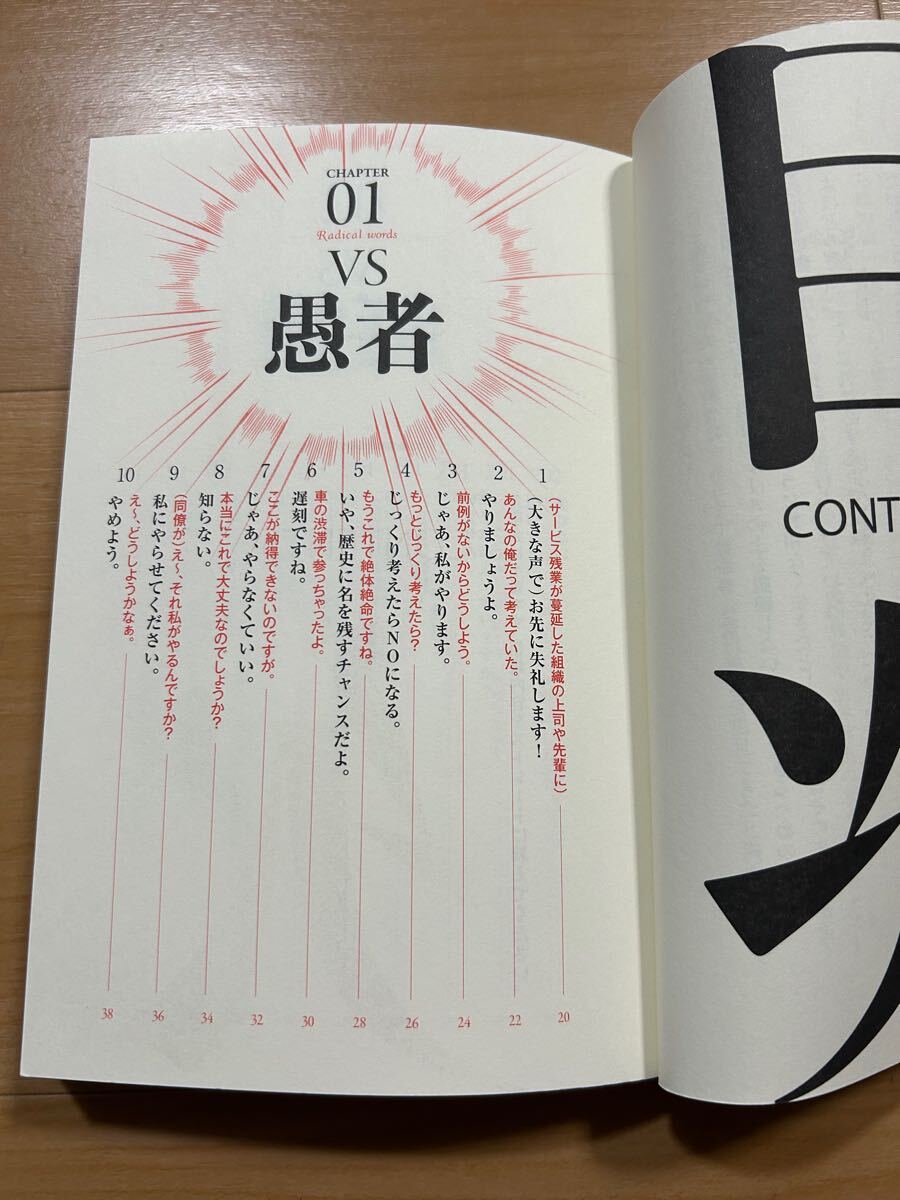 目
次
CONT
CHAPTER
01
Radical words
VS
愚者
1
(サービス残業が蔓延した組織の上司や先輩に)
(大きな声で)お先に失礼します!
20
2
あんなの俺だって考えていた。
やりましょうよ。
22
3
前例がないからどうしよう。
じゃあ、私がやります。
24
4
もっとじっくり考えたら?
じっくり考えたらNOになる。
26
5
もうこれで絶体絶命ですね。
いや、歴史に名を残すチャンスだよ。
28
6
車の渋滞で参っちゃったよ。
遅刻ですね。
30
7
ここが納得できないのですが。
じゃあ、やらなくていい。
32
8
本当にこれで大丈夫なのでしょうか?
知らない。
34
9
(同僚が)え〜、それ私がやるんですか?
私にやらせてください。
36
10
え〜、どうしようかなぁ。
やめよう。
38